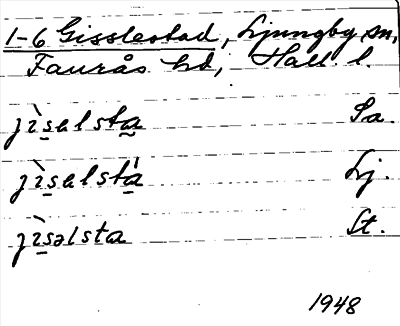 1-6 Gisslestad, Ljungby sn,
Faurås hd, Hall l.
jìsalsta Sa.
jìsalstá Lj.
jìsəlsta St.
1948